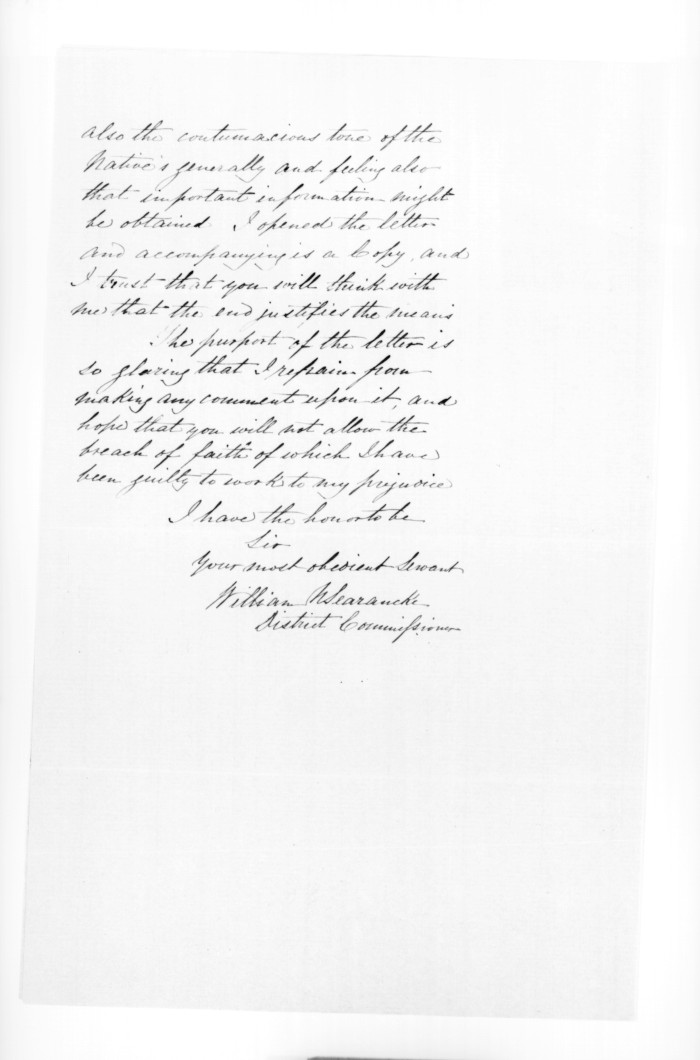 also the contumacious tone of the
Native's generally and feeling also
that important information might
be obtained I opened the letter
and accompanying is a Copy, and
I trust that you will think with
me that the end justifies the means
The purport of the letter is
so glaring that I refrain from
making any comment upon it, and
hope that you will not allow the
breach of faith of which I have
been guilty to work to my prejudice
I have the honor to be
Sir
Your most obedient Servant
William N Searancke
District Commissioner